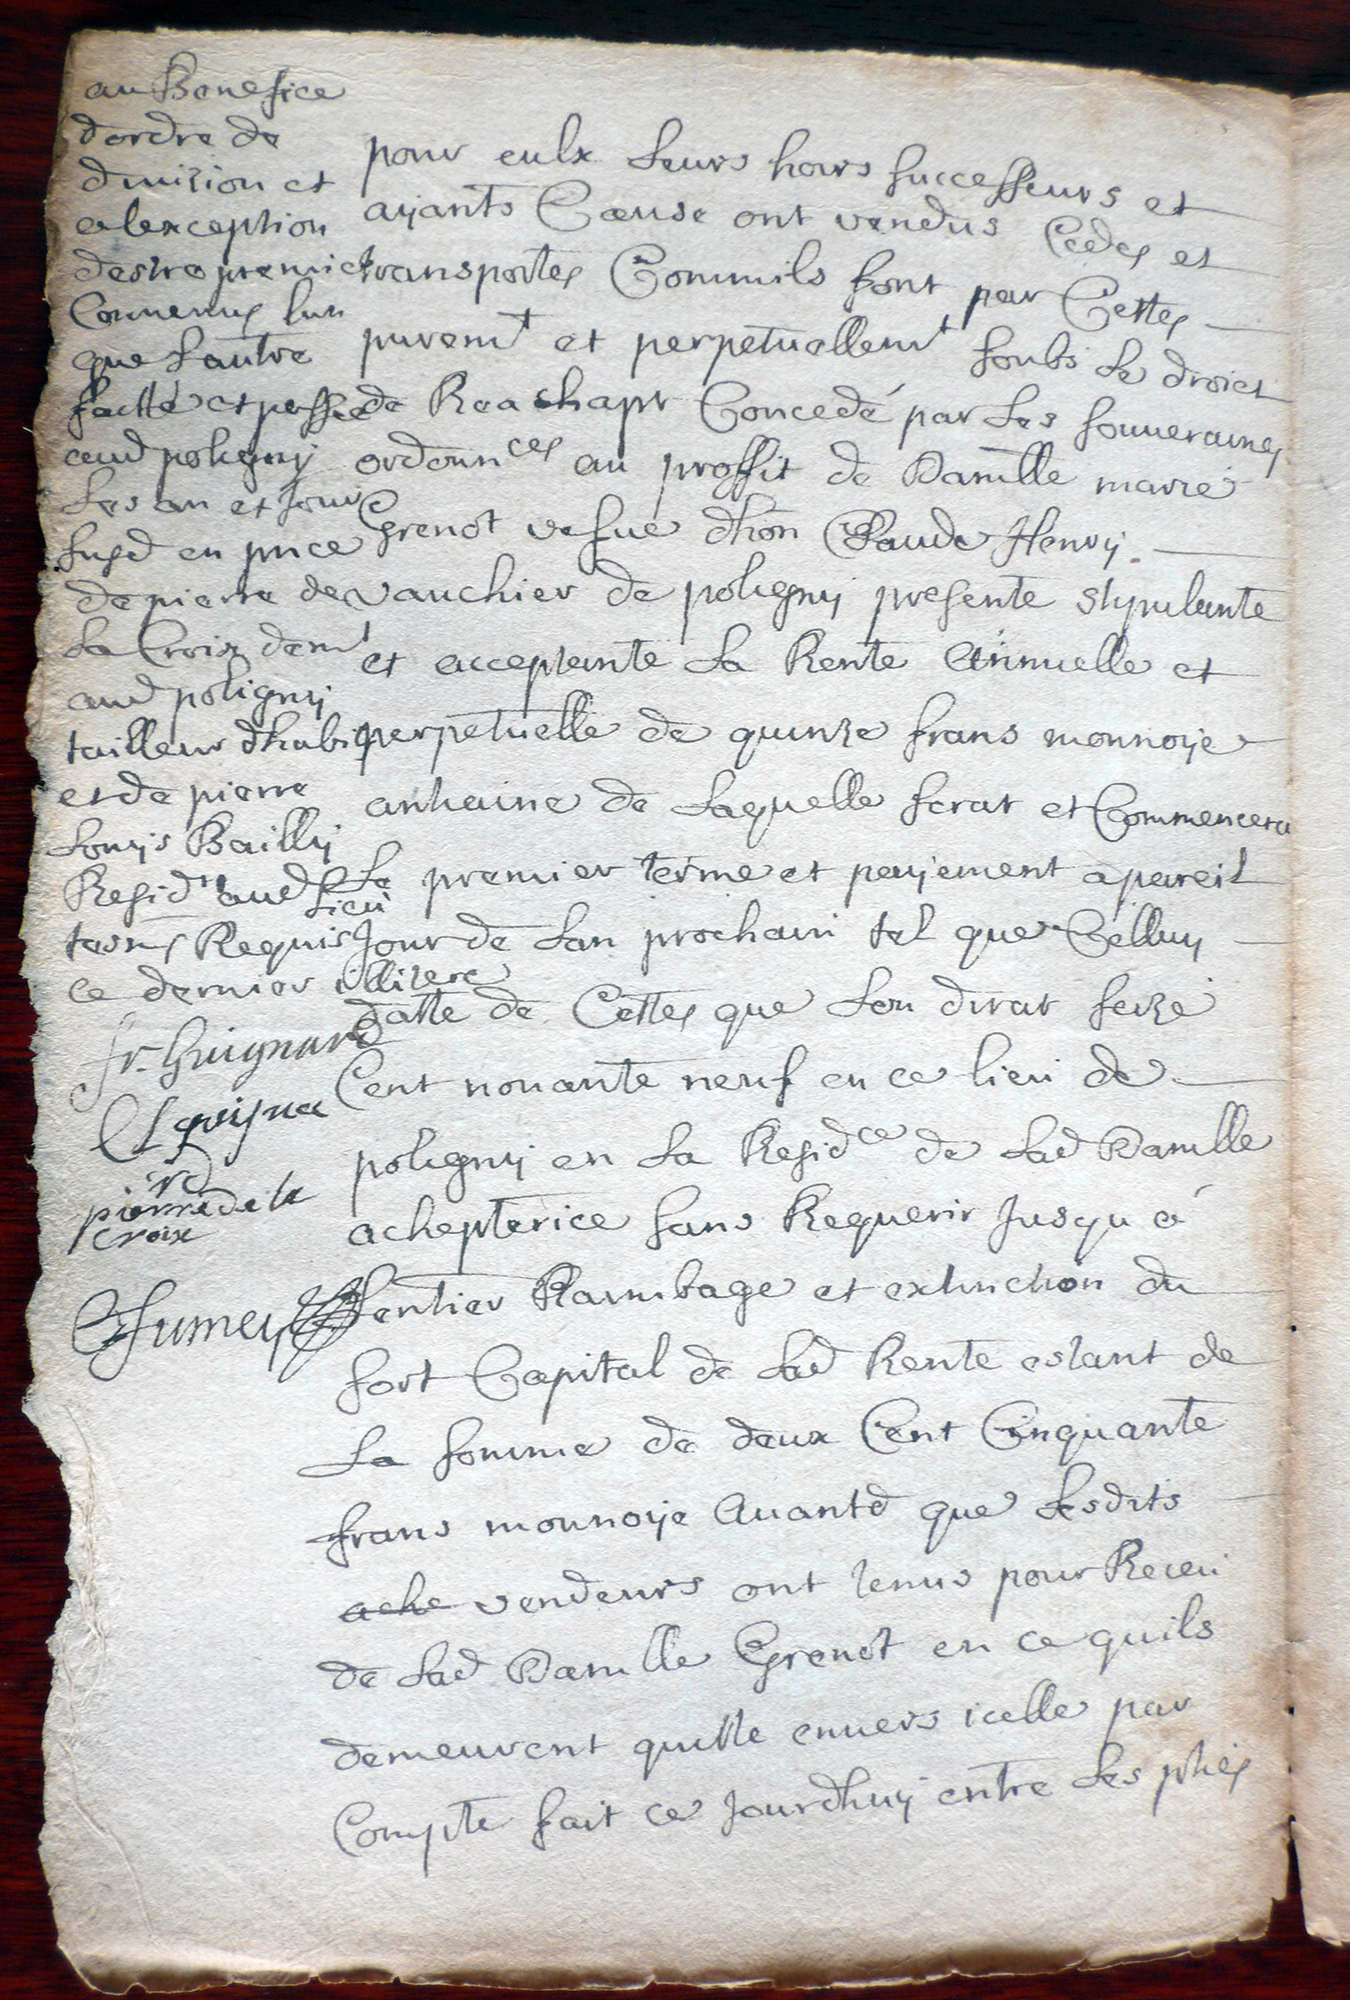 au Benefice
dordre de
division et
a lexception
destre premier
Convenus lun
que lautre
faitte et passée
aud poligny
les an et jour
susd en pnce
de pierre de
la Croix demt
aud poligny
tailleur dhabis
et de pierre
Louys Bailly
Residt aud lieu
tesm Requis
ce dernier illizere
fr. Guignard
pierre de la
croix
Jumey
pour eulx leurs hoirs successeurs et
ayants Cause ont vendus Cedes et
transportes Comm ils font par Cettes
puremt et perpetuellemt soubs le droict
de Reachapt Concedé par les souveraines
ordonnces au proffit de Damlle marie
Grenot vefue dhon Claude Henry
vauchier de poligny presente stipulante
et acceptante la Rente Annuelle et
perpetuelle de quinze frans monnoye
anhaine de laquelle serat et Commencera
le premier terme et payement a pareil
Jour de lan prochain tel que Celluy
datte de Cettes que lon dirat seize
Cent nonante neuf en ce lieu de
poligny en la Residce de lad Damlle
achepterice sans Requerir Jusqu a
lentier Raimbage et extinction du
sort Capital de lad Rente estant de
la somme de deux Cent Cinquante
frans monnoye Avantd que lesdits
ache vendeurs ont tenus pour Receu
de lad Damlle Grenot en ce quils
demeurent quitte envers icelle par
Compte fait ce Jourdhuy entre les pties